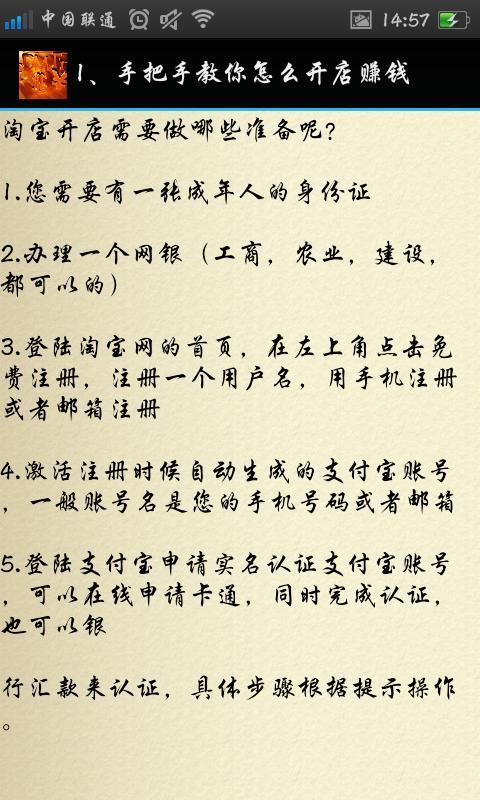 中国联通 14:57
1、手把手教你怎么开店赚钱
淘宝开店需要做哪些准备呢?
1.您需要有一张成年人的身份证
2.办理一个网银（工商，农业，建设，
都可以的）
3.登陆淘宝网的首页，在左上角点击免
费注册，注册一个用户名，用手机注册
或者邮箱注册
4.激活注册时候自动生成的支付宝账号
，一般账号名是您的手机号码或者邮箱
5.登陆支付宝申请实名认证支付宝账号
，可以在线申请卡通，同时完成认证，
也可以银
行汇款来认证，具体步骤根据提示操作
。